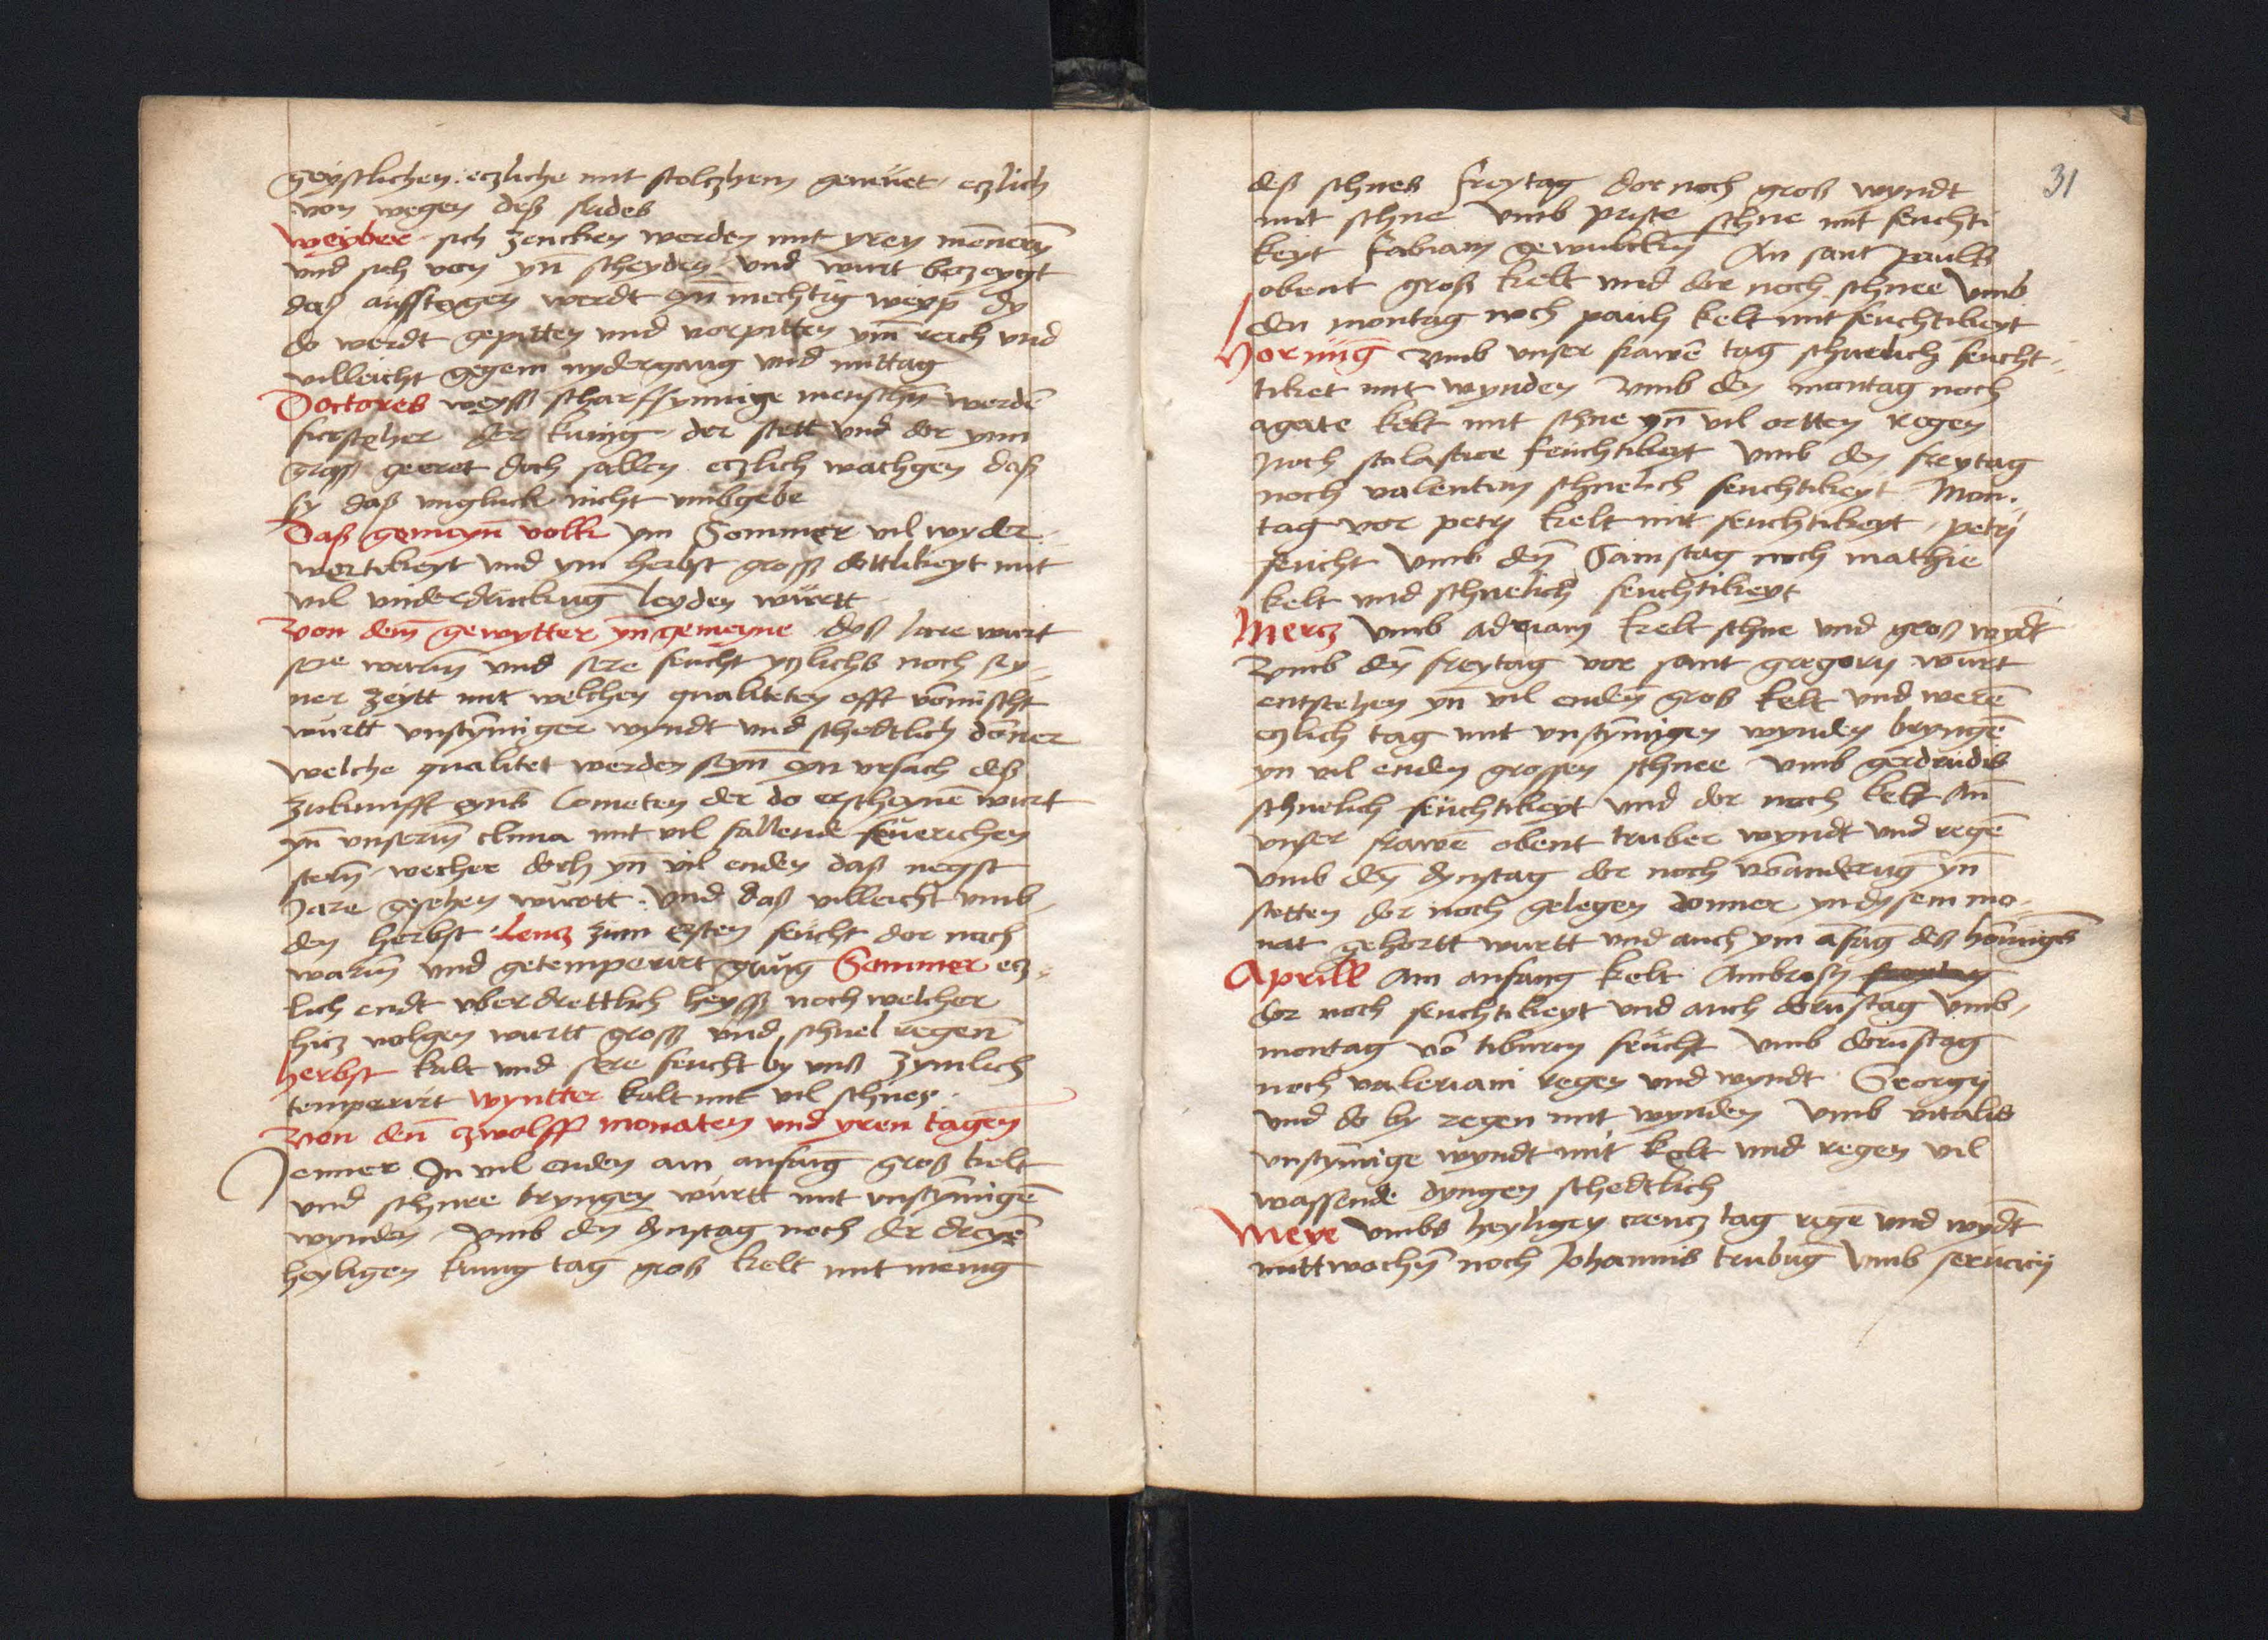 geystlichen. eczliche mit stolczhem gemuet eczlich
von wegen deß frides
Weyber sich zencken werden mit yren mēneren
und sich von yn̄ scheyden und wurt beczeygt
daß auffstegen werdt eyn̄ mechtig weyp dy
do werdt gepitten und vorpitten vm̄ reich und
villeicht gegem nydergang und mittag
Doctores weyß scharffsynnige menschn̄ werdē
fursteher der kunig der stett und dor ynn
groß geeret doch sallen eczlich wachgen daß
sy daß ungluck nicht umbgebē
Daß gemeyn̄ volk ym Sommer vil wyder
wertikeyt und ym herbst groß dottlikeyt mit
vil underdruckung leyden wurtt
Von dem̄ gewytter yn gemeyne dyß Jare wurt
sere warm̄ und sere feucht yczlichs noch sy
ner zeytt mit welchen qualiteten offt vōmischt
wurtt unstym̄iger wyndt und schedtlich dōner
welche qualitet werden seyn̄ eyn ursach deß
zukunfft eynß Cometen der do erscheynē wurt
yn̄ unserm̄ clima mit vil fallende feuerichen
stern̄ wecher doch yn̄ vil enden daß negst
Jare gesehen wurtt. und daß villeicht umb
den herbst Lencz zum ersten feucht dor nach
warm̄ und getemperirt gnug Sommer ecz
lich endt uberdrettlich heyß noch welcher
hicz volgen wurtt groß und schnel regen̄
herbst kalt und sere feucht by unß zymlich
temperirt wyntter kalt mit vil schnes.
Von den̄ zwolff monaten und yren tagen̄
Jenner In vil enden am anfang groß kelt
und schnee bryngen wurtt mit unstym̄igē
wynden Umb den dynstag noch der dreyē
heyligen kunig tag groß kelt mit menig
31
deß schneß freytag dor noch groß wyndt
mit schne Umb priste schne mit feuchti
keyt Fabiani gewulckn̄ An sant Paulß
obent groß kelt und dor noch schnee Umb
den montag noch pauli kelt mit feuchtikeyt
Hornuḡ Umb unser frawē tag schnelich feucht
tiket mit wynden Umb den montag noch
agate kelt mit schne yn̄ vil ortten regen
Noch scolastice feuchtikeyt Umb den freytag
noch valentini schnelich feuchtikeyt Mon
tag vor petri kelt mit feuchtikeyt petrij
feucht Umb den̄ Samstag noch mathie
kelt und schnelich feuchtikeyt
Mercz Umb adriani kelt schne und groß wyd̄t
Umb den̄ freytag vor sant gregorij wurt
entstehen yn̄ vil enden groß kelt und werē
eczlich tag mit unstym̄igen wynden bryngē
yn vil enden grossen schnee Umb gerdrudis
schnelich feuchtikeyt und dor noch kelt An̄
unser frawē obent truber wyndt und regē
Umb den̄ dynstag dor noch vōanderuḡ yn
stetten dor noch gelegen donner yn dysem mo
nat gehortt wurtt und auch ym afāg deß hornigß
Aprill Am anfang kelt Ambrosij freytag
dor noch feuchtikeyt und auch dorn̄stag Umb
montag vō tiburcij feucht Umb dorn̄stag
noch valeriani regen und wyndt Georgij
und do by regen mit wynden Umb vitalis
unstym̄ige wyndt mit kelt und regen vil
wassende dyngen schedtlich
Meye Umbs heyligen creucz tag regē und wyd̄t
mittwochn̄ noch Johannis trubuḡ Umb servacij